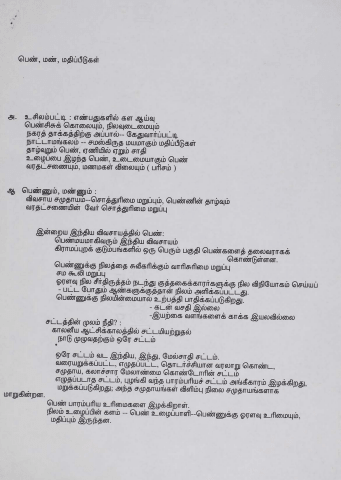 பெண், மண், மதிப்பீடுகள்
அ. உசிலம்பட்டி : எண்பதுகளில் கள ஆய்வு
பெண்சிசுக் கொலையும், நிலவுடைமையும்
நகரத் தாக்கத்திற்கு அப்பால்-- கேதுவார்பட்டி
நாட்டாமங்கலம் -- சமஸ்கிருத மயமாகும் மதிப்பீடுகள்
தாழ்வுறும் பெண், ஏணியில் ஏறும் சாதி
உழைப்பை இழந்த பெண், உடைமையாகும் பெண்
வரதட்சணையும், மணமகள் விலையும் ( பரிசம் )
ஆ பெண்ணும், மண்ணும் :
விவசாய சமுதாயம்--சொத்துரிமை மறுப்பும், பெண்ணின் தாழ்வும்
வரதட்சணையின் வேர் சொத்துரிமை மறுப்பு
இன்றைய இந்திய விவசாயத்தில் பெண்:
பெண்மயமாகிவரும் இந்திய விவசாயம்
கிராமப்புறக் குடும்பங்களில் ஒரு பெரும் பகுதி பெண்களைத் தலைவராகக்
கொண்டுள்ளன.
பெண்ணுக்கு நிலத்தை சுவீகரிக்கும் வாரிசுரிமை மறுப்பு
சம கூலி மறுப்பு
ஓரளவு நில சீர்திருத்தம் நடந்து குத்தகைக்காரர்களுக்கு நில விநியோகம் செய்யப்
- பட்ட போதும் ஆண்களுக்குத்தான் நிலம் அளிக்கப்பட்டது.
பெண்ணுக்கு நிலமின்மையால் உற்பத்தி பாதிக்கப்படுகிறது.
- கடன் வசதி இல்லை
-இயற்கை வளங்களைக் காக்க இயலவில்லை
சட்டத்தின் மூலம் நீதி? :
காலனிய ஆட்சிக்காலத்தில் சட்டமியற்றுதல்
நாடு முழுவதற்கும் ஒரே சட்டம்
ஒரே சட்டம் வட இந்திய, இந்து, மேல்சாதி சட்டம்.
வரையறுக்கப்பட்ட, எழுதப்பட்ட, தொடர்ச்சியான வரலாறு கொண்ட,
சமுதாய, கலாச்சார மேலாண்மை கொண்டோரின் சட்டம்
எழுதப்படாத சட்டம், பழங்கி வந்த பாரம்பரியச் சட்டம் அங்கீகாரம் இழக்கிறது.
மறுக்கப்படுகிறது; அந்த சமுதாயங்கள் விளிம்பு நிலை சமுதாயங்களாக
மாறுகின்றன.
பெண் பாரம்பரிய உரிமைகளை இழக்கிறாள்.
நிலம் உழைப்பின் களம் -- பெண் உழைப்பாளி--பெண்ணுக்கு ஓரளவு உரிமையும்,
மதிப்பும் இருந்தன.